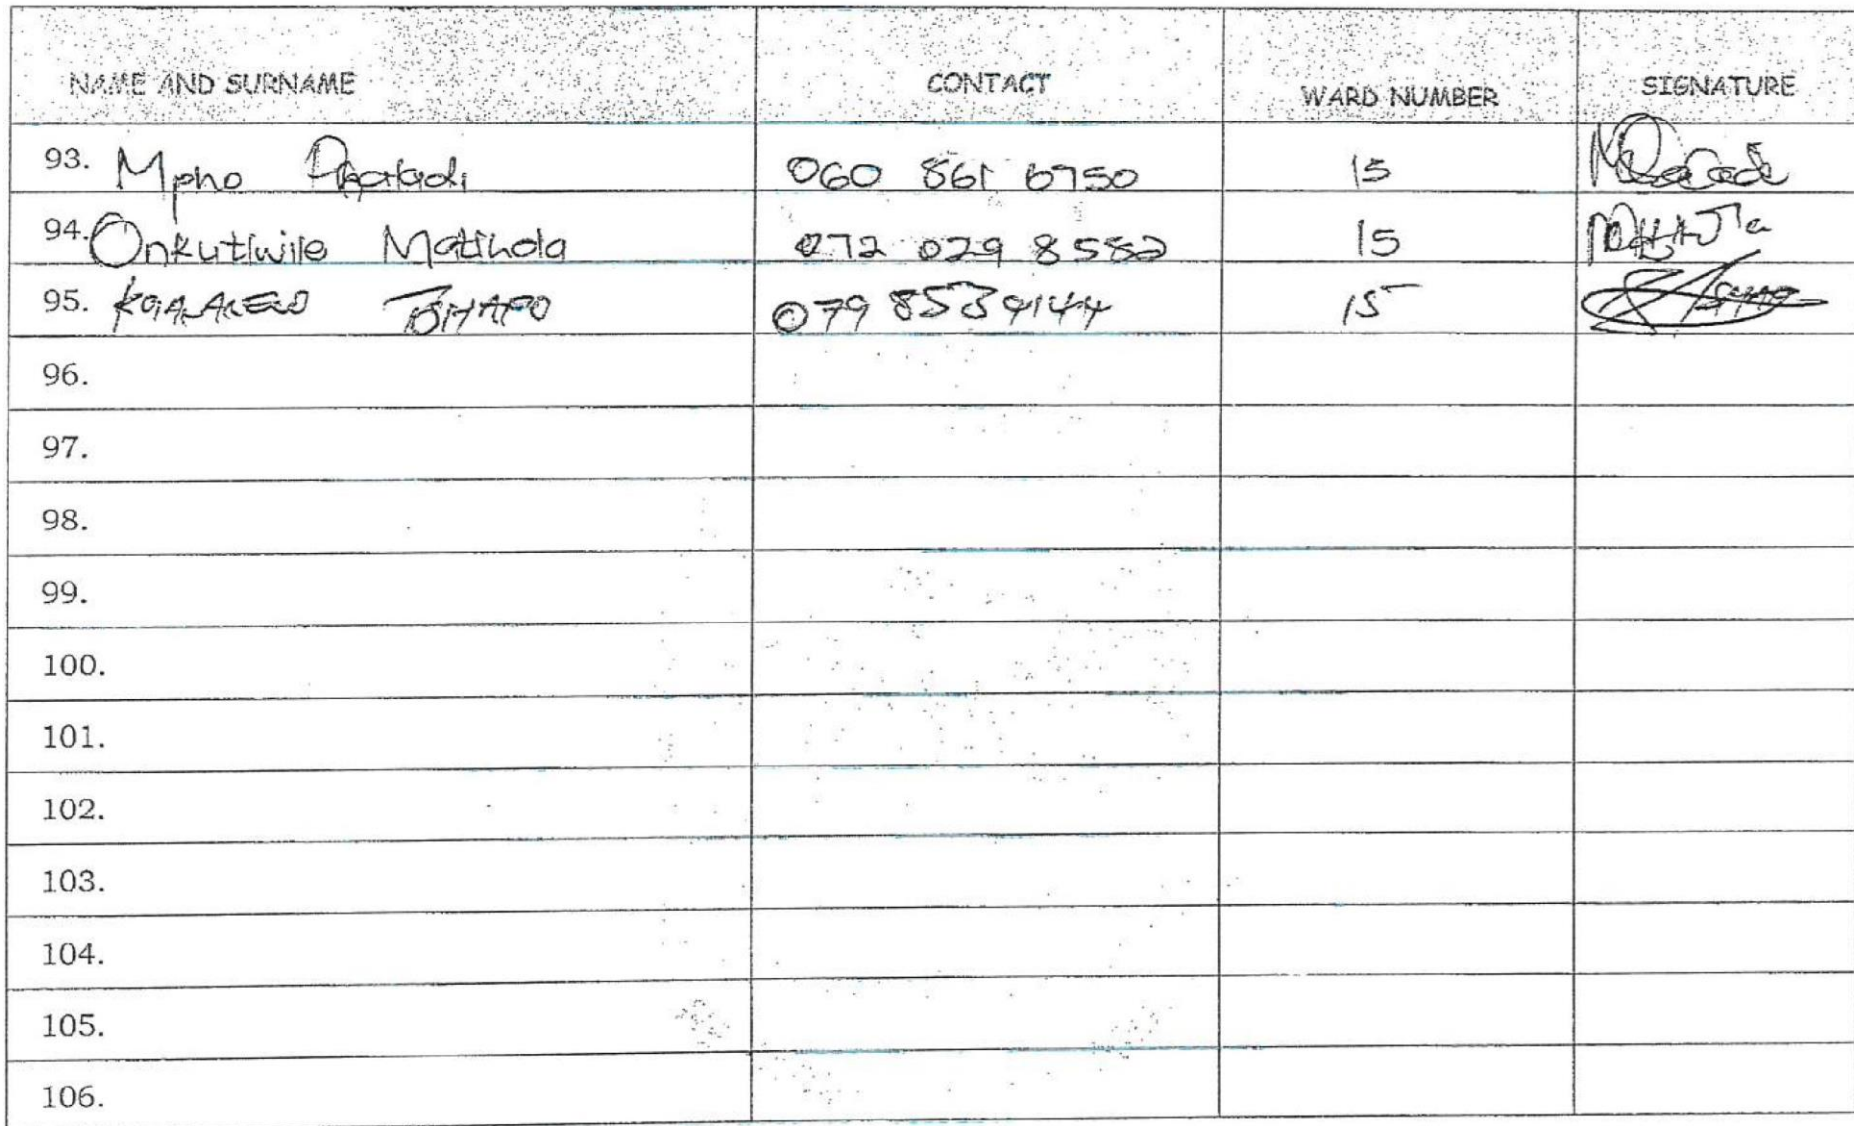 NAME AND SURNAME CONTACT WARD NUMBER SIGNATURE
93. Mpho 060 861 6750 15
94. Onkutlwile Matlhola 072 029 8582 15
95. 079 8539144 15
96.
97.
98.
99.
100.
101.
102.
103.
104.
105.
106.